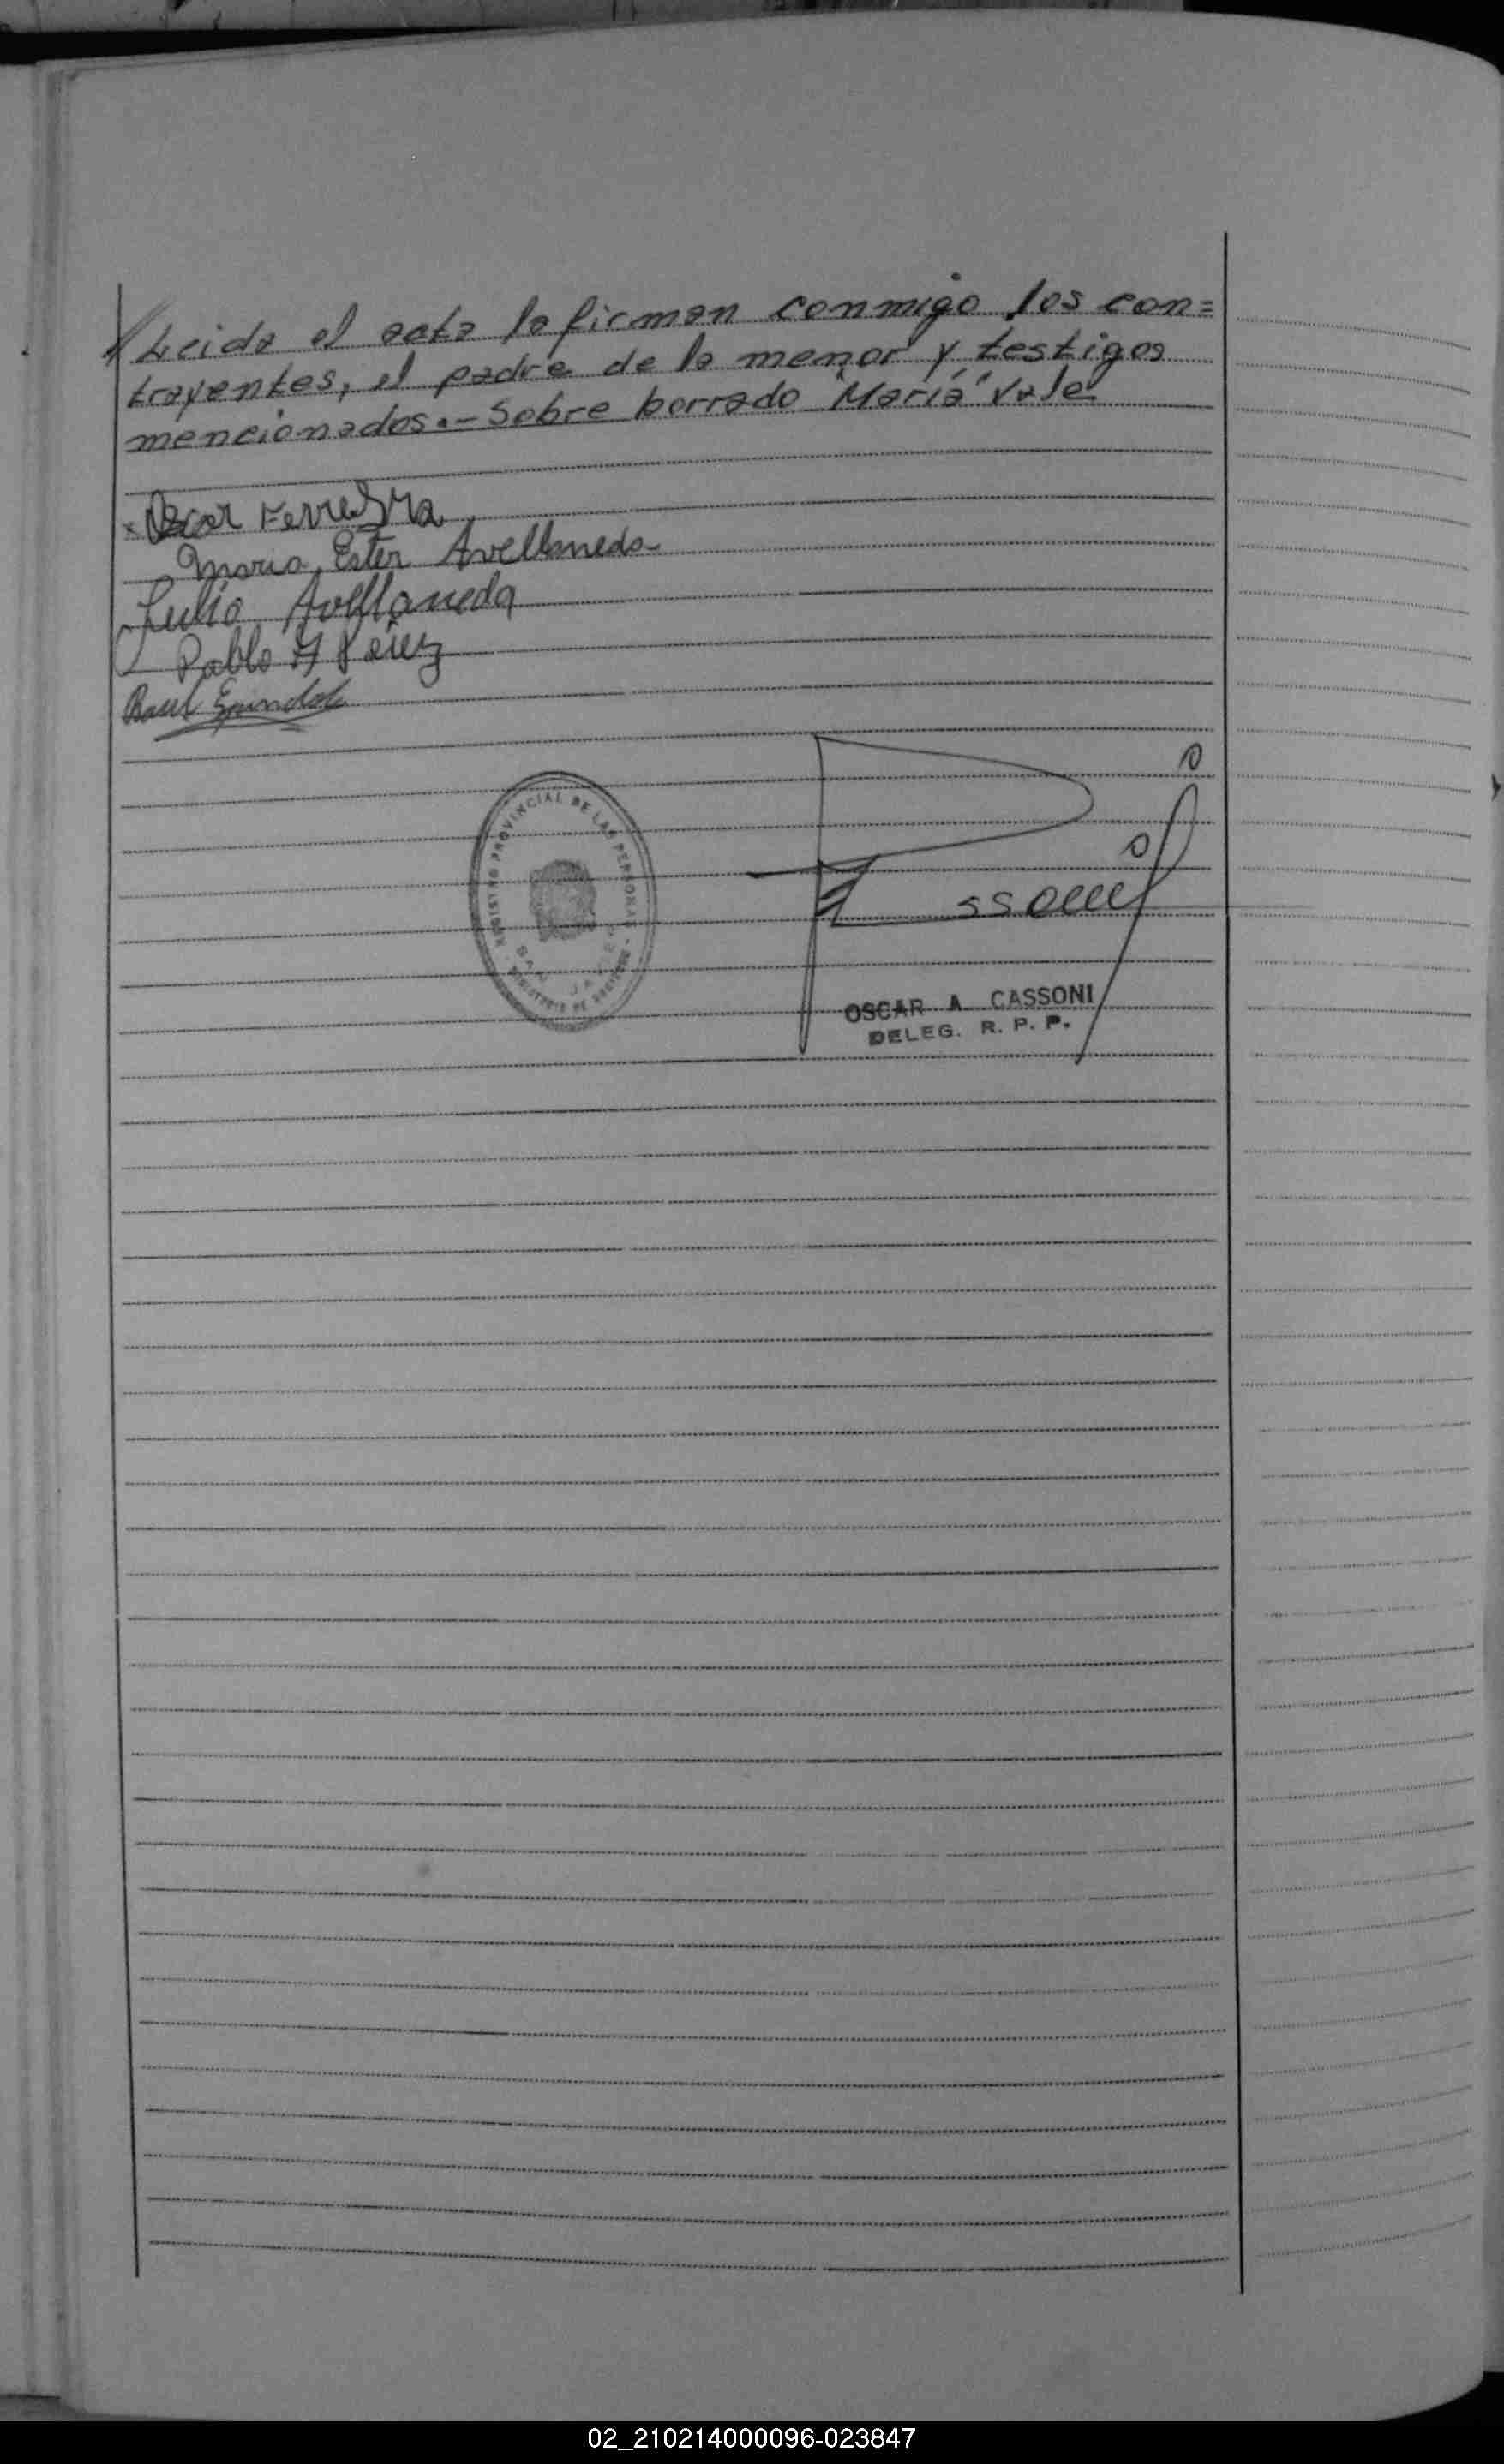 Leida el acta la firman conmigo los con=
trayentes, el padre de la menor y testigos
mencionados.- Sobre borrado "Maria" Vale
Oscar Ferreyra
Maria Ester Avellaneda
Julio Avellaneda
Pablo H Pérez
Raul
REGISTRO PROVINCIAL DE LAS PERSONAS
SAN JAVIER
OSCAR A. CASSONI
DELEG. R. P. P.
02_210214000096-023847